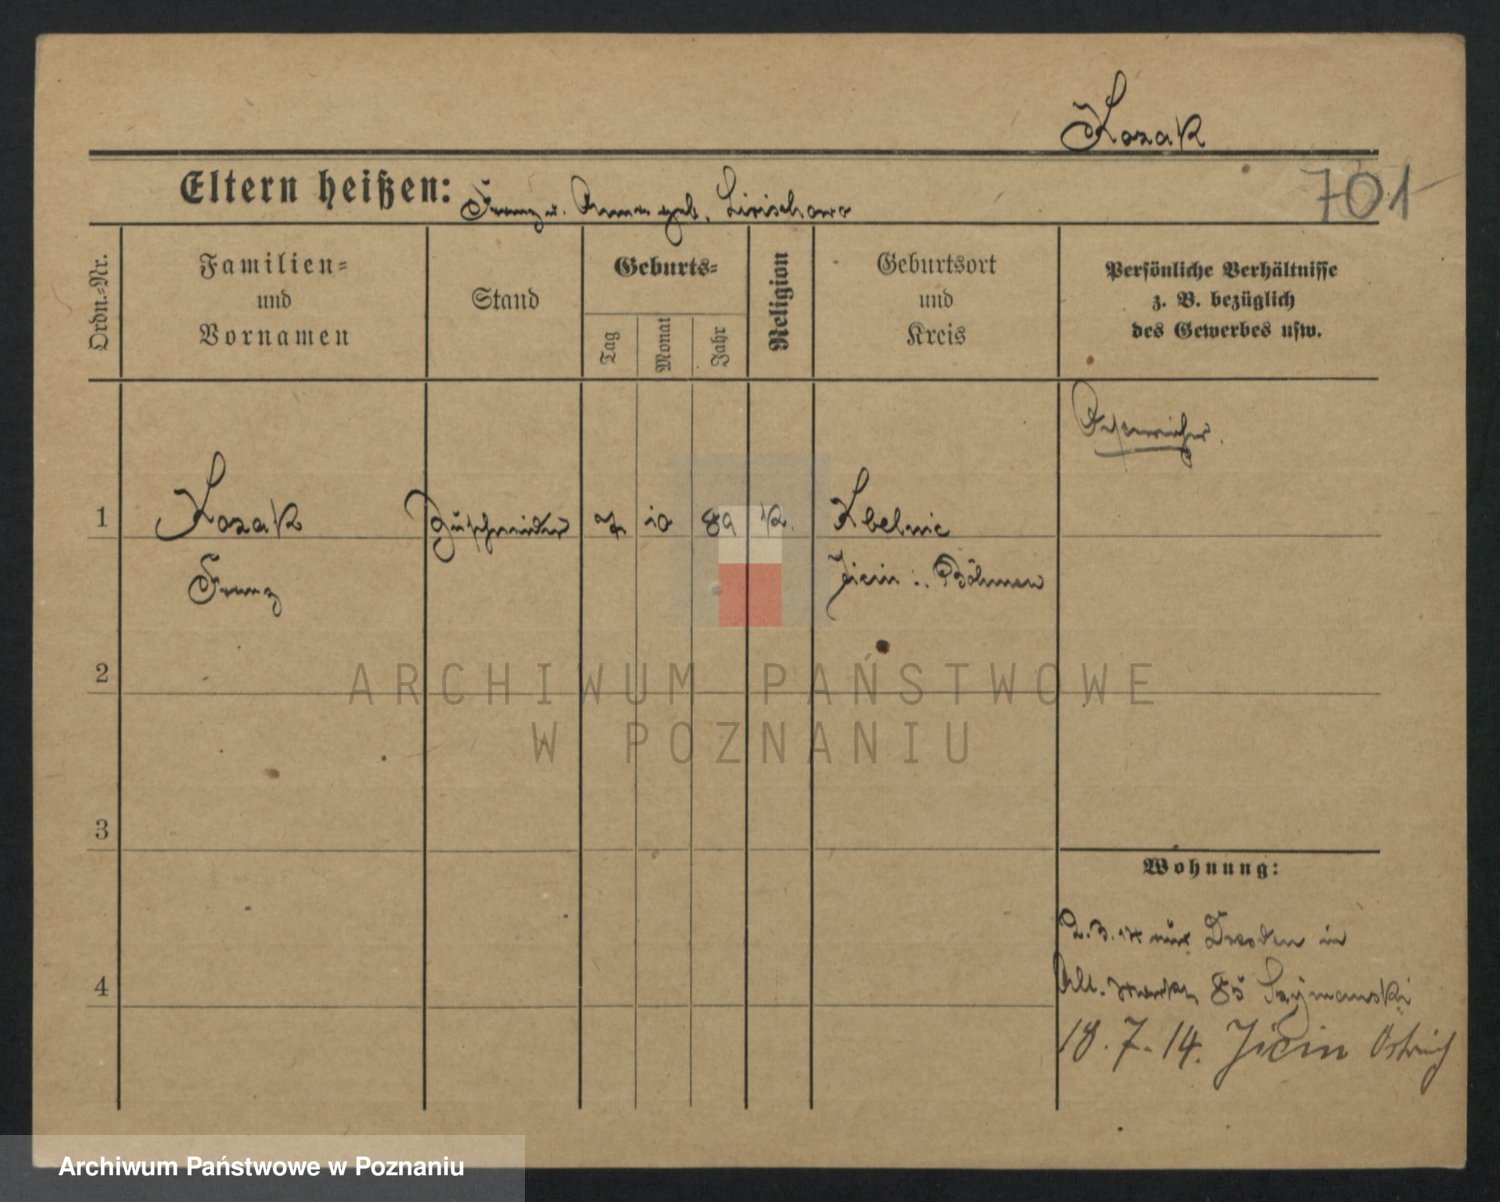 Kozak
701
Eltern heißen: Franz u. Anna geb.
Ordn.-Nr.
Familien-
und
Vornamen
Stand
Geburts-
Tag
Monat
Jahr
Religion
Geburtsort
und
Kreis
Persönliche Verhältnisse
z. B. bezüglich
des Gewerbes usw.
Österreicher.
1 Kozak Zuschneider 7 10 89 K. Kbelnic
Franz Jicin : Böhmen
2
3
4
Wohnung:
2.3.14 aus Dresden in
Alt. Markt 85 Szymanski
18.7.14. Jičin Östreich
ARCHIWUM PAŃSTWOWE
W POZNANIU
Archiwum Państwowe w Poznaniu